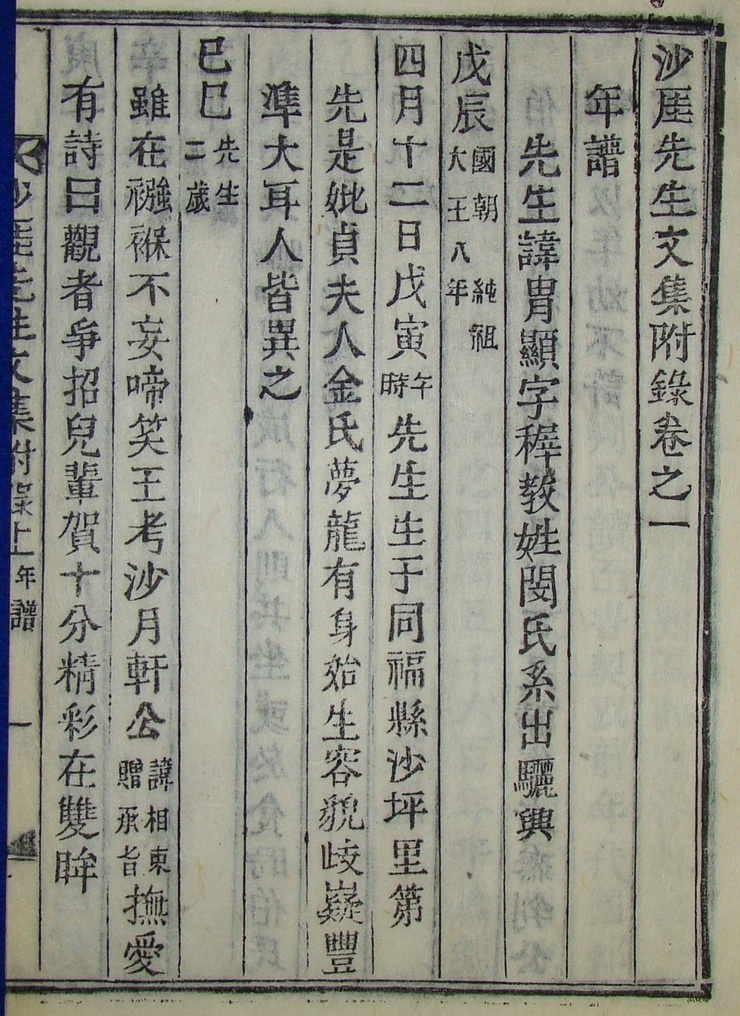 沙厓先生文集附錄卷之一
年譜
先生諱胄顯字穉教姓閔氏系出驪興
戊辰國朝純祖大王八年
四月十二日戊寅午時先生生于同福縣沙坪里第
先是妣貞夫人金氏夢龍有身始生容貌岐嶷豐
準大耳人皆異之
己巳先生二歲
雖在襁褓不妄啼笑王考沙月軒公諱相東贈承旨撫愛
有詩曰觀者爭招兒輩賀十分精彩在雙眸
沙厓先生文集附錄上 年譜 一